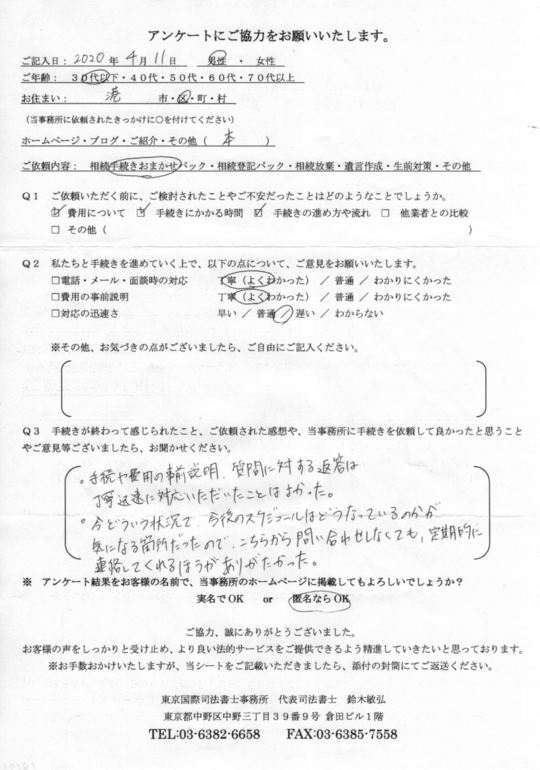 アンケートにご協力をお願いいたします。
ご記入日：2020年 4月 11日 男性 ・ 女性
ご年齢：30代以下・40代・50代・60代・70代以上
お住まい： 港 市・区・町・村
（当事務所に依頼されたきっかけに○を付けてください）
ホームページ・ブログ・ご紹介・その他（ 本 ）
ご依頼内容： 相続手続きおまかせパック・相続登記パック・相続放棄・遺言作成・生前対策・その他
Q1 ご依頼いただく前に、ご検討されたことやご不安だったことはどのようなことでしょうか。
☑ 費用について ☑ 手続きにかかる時間 ☑ 手続きの進め方や流れ □ 他業者との比較
□ その他（ ）
Q2 私たちと手続きを進めていく上で、以下の点について、ご意見をお願いいたします。
□電話・メール・面談時の対応 丁寧（よくわかった） ／ 普通 ／ わかりにくかった
□費用の事前説明 丁寧（よくわかった） ／ 普通 ／ わかりにくかった
□対応の迅速さ 早い ／ 普通 ／ 遅い ／ わからない
※その他、お気づきの点がございましたら、ご自由にご記入ください。
Q3 手続きが終わって感じられたこと、ご依頼された感想や、当事務所に手続きを依頼して良かったと思うこと
やご意見等ございましたら、お聞かせください。
。手続や費用の事前説明、質問に対する返答は
丁寧迅速に対応いただいたことはよかった。
。今どういう状況で、今後のスケジュールはどうなっているのかが
気になる箇所だったので、こちらから問い合わせしなくても、定期的に
連絡してくれるほうがありがたかった。
※ アンケート結果をお客様の名前で、当事務所のホームページに掲載してもよろしいでしょうか？
実名でOK or 匿名ならOK
ご協力、誠にありがとうございました。
お客様の声をしっかりと受け止め、より良い法的サービスをご提供できるよう精進していきたいと思っております。
※お手数おかけいたしますが、当シートをご記載いただきましたら、添付の封筒にてご返送ください。
東京国際司法書士事務所 代表司法書士 鈴木敏弘
東京都中野区中野三丁目39番9号 倉田ビル1階
TEL:03-6382-6658 FAX:03-6385-7558